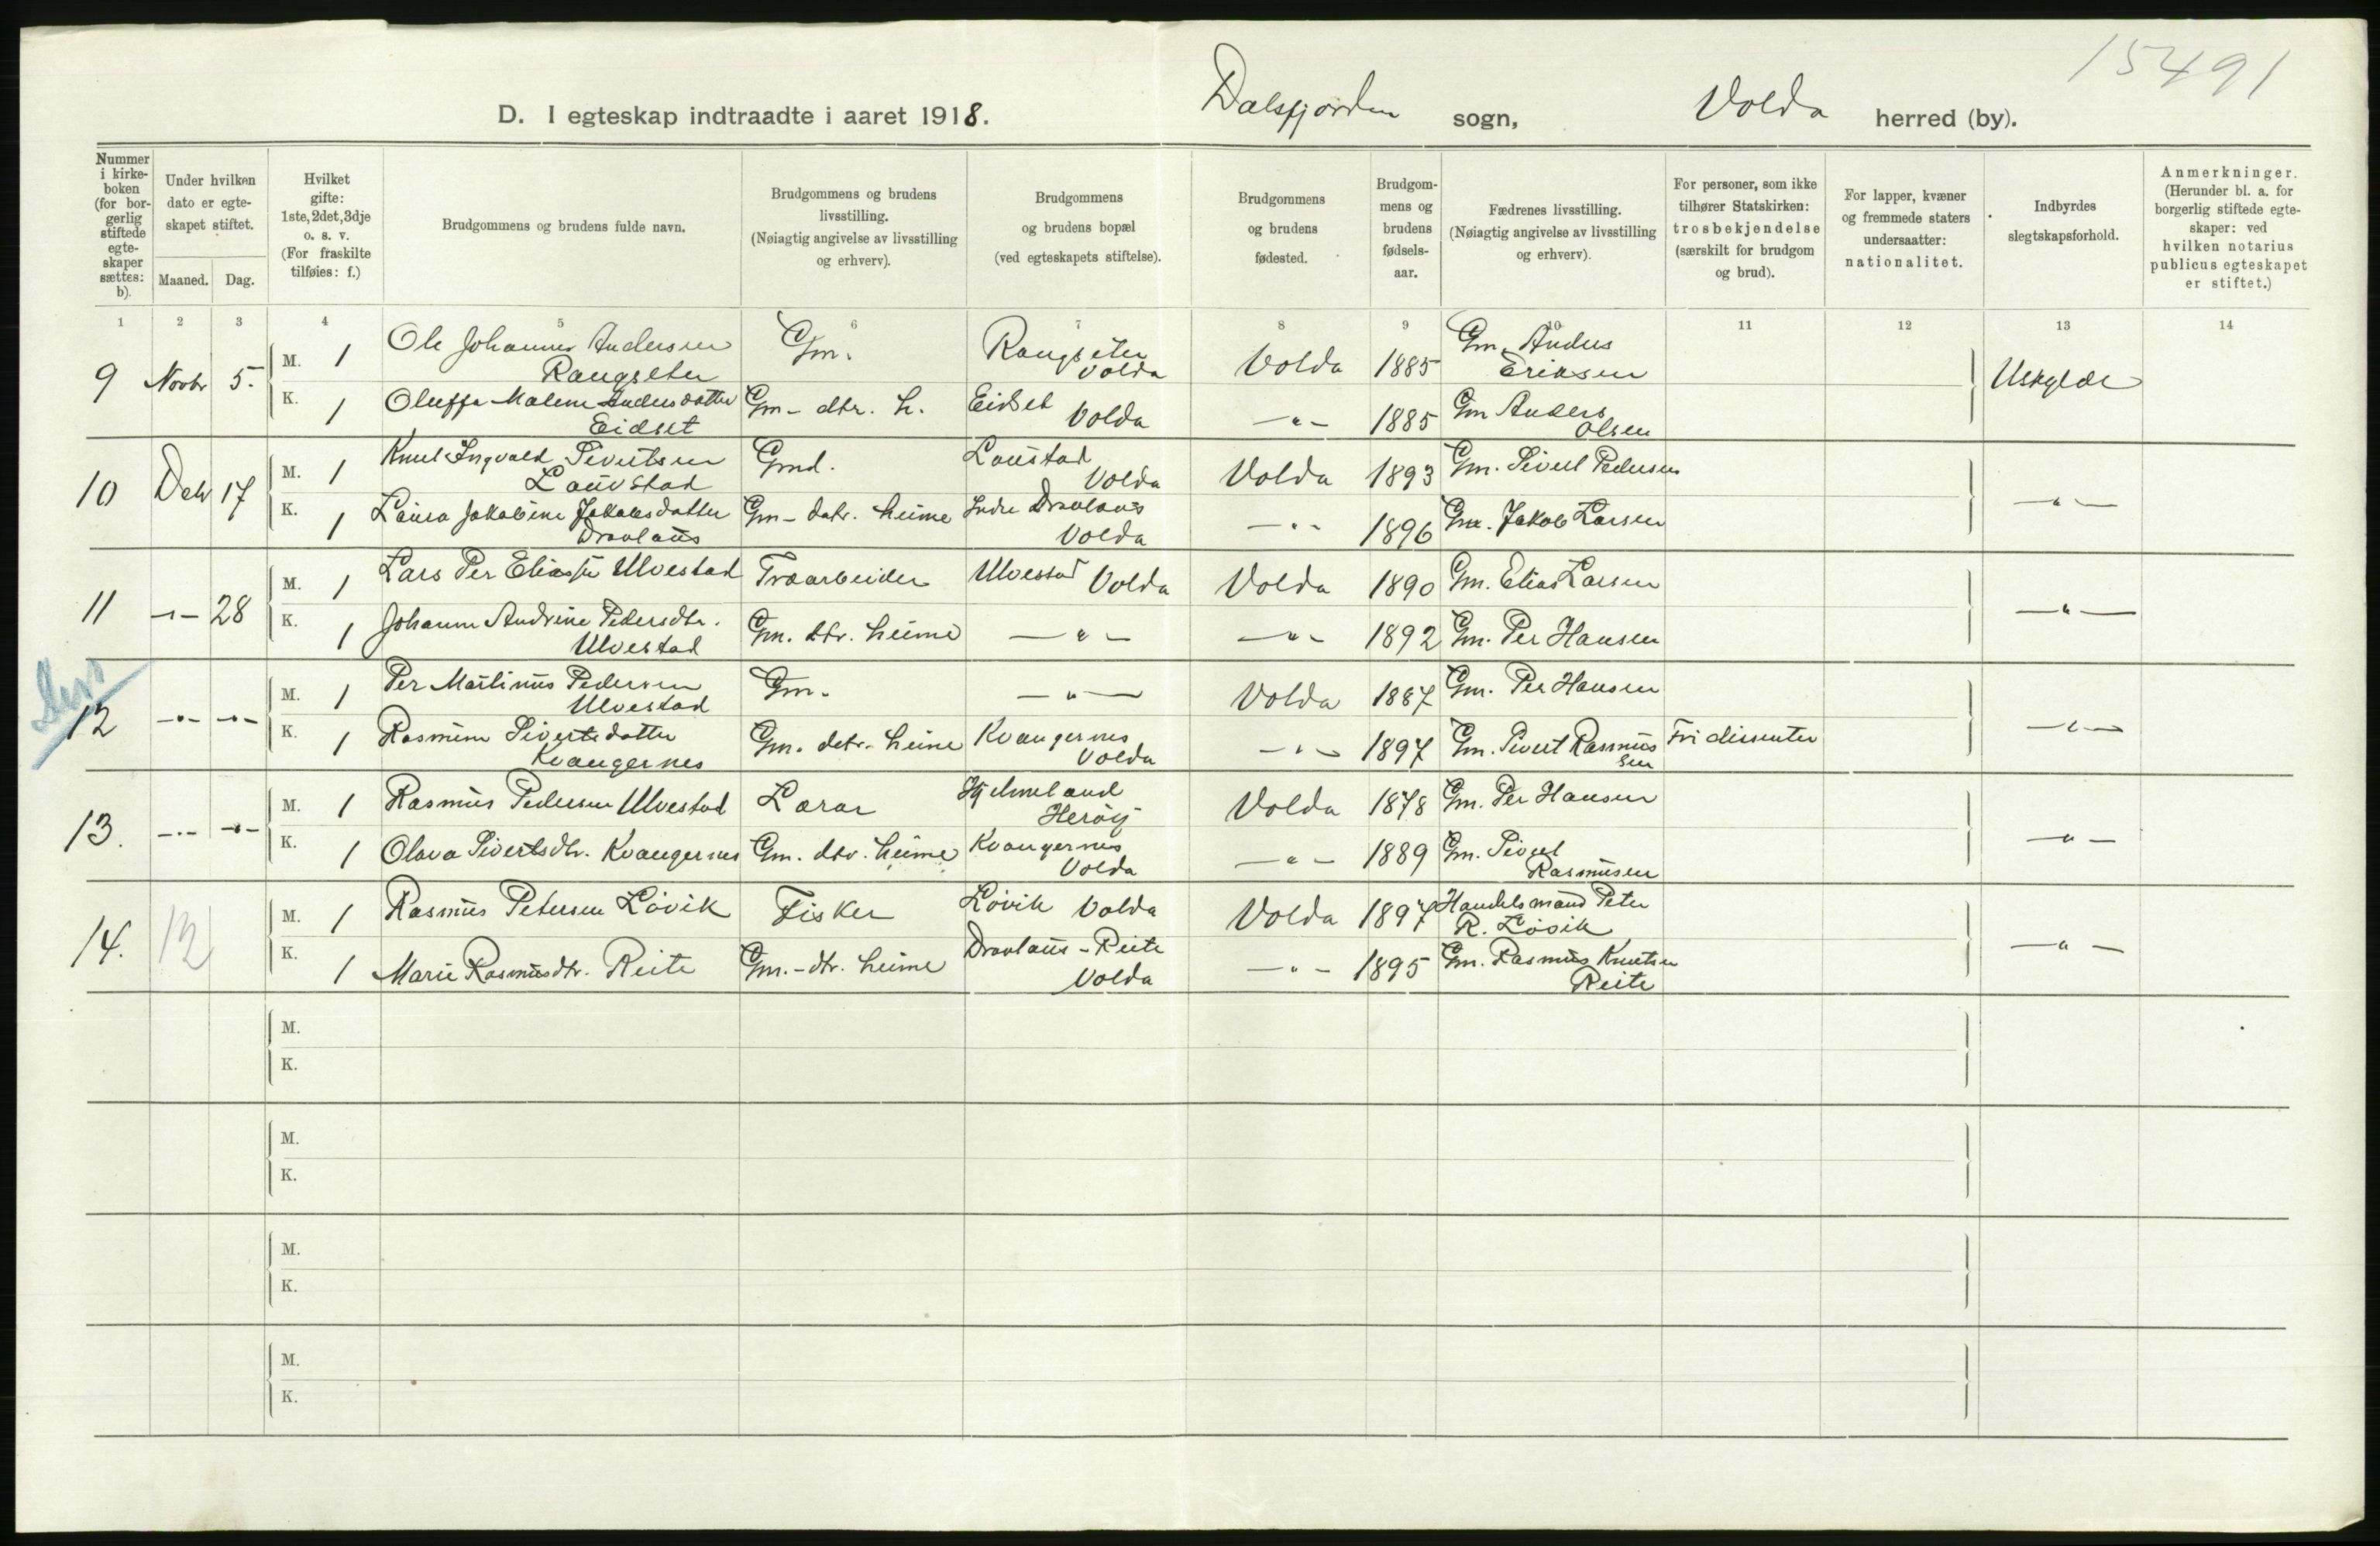 15491
D. I egteskap indtraadte i aaret 1918. Dalsfjorden sogn, Volda herred (by).
Nummer i kirkeboken (for borgerlig stiftede egteskaper sættes: b).
Under hvilken dato er egteskapet stiftet.
Maaned. Dag.
Hvilket gifte: 1ste, 2det, 3dje o. s. v. (For fraskilte tilføies: f.)
Brudgommens og brudens fulde navn.
Brudgommens og brudens livsstilling. (Nøiagtig angivelse av livsstilling og erhverv).
Brudgommens og brudens bopæl (ved egteskapets stiftelse).
Brudgommens og brudens fødested.
Brudgommens og brudens fødselsaar.
Fædrenes livsstilling. (Nøiagtig angivelse av livsstilling og erhverv).
For personer, som ikke tilhører Statskirken: trosbekjendelse (særskilt for brudgom og brud).
For lapper, kvæner og fremmede staters undersaatter: nationalitet.
Indbyrdes slegtskapsforhold.
Anmerkninger. (Herunder bl. a. for borgerlig stiftede egteskaper: ved hvilken notarius publicus egteskapet er stiftet.)
1 2 3 4 5 6 7 8 9 10 11 12 13 14
9 Novbr 5. M. 1 Ole Johannes Andersen Rangseter Gm. Rangseter Volda Volda 1885 Gm. Anders Eriksen Uskylde
K. 1 Oluffa Malene Andersdotter Eidset Gm - dtr. h. Eidset Volda —"— 1885 Gm Anders Olsen
10 Debr 17 M. 1 Knut Ingvald Sivertsen Lauvstad Gmd. Laustad Volda Volda 1893 Gm. Sivert Pedersen —"—
K. 1 Laura Jakobine Jakobsdatter Dravlaus Gm - datr. heime Indre Dravlaus Volda —"— 1896 Gm. Jakob Larsen
11 —"— 28 M. 1 Lars Per Eliassen Ulvestad Træarbeider Ulvestad Volda Volda 1890 Gm. Elias Larsen —"—
K. 1 Johanne Andrine Pedersdtr. Ulvestad Gm. dtr. heime —"— —"— 1892 Gm. Per Hansen
12 —"— —"— M. 1 Per Martinus Pedersen Ulvestad Gm. —"— Volda 1887 Gm. Per Hansen —"—
K. 1 Rasmine Sivertsdotter Kvangernes Gm. dotr. heime Kvangernes Volda —"— 1897 Gm. Sivert Rasmussen Fri dissenter
13. —"— —"— M. 1 Rasmus Pedersen Ulvestad Lærar Hjelmeland Herøy Volda 1878 Gm. Per Hansen —"—
K. 1 Olava Sivertsdtr. Kvangernes Gm. dtr. heime Kvangernes Volda —"— 1889 Gm. Sivert Rasmusen
14. 12 M. 1 Rasmus Petersen Løvik Fisker Løvik Volda Volda 1897 Handelsmand Peter R. Løvik —"—
K. 1 Marie Rasmusdtr. Reite Gm. - dtr. heime Dravlaus - Reite Volda —"— 1895 Gm. Rasmus Knutsen Reite
M.
K.
M.
K.
M.
K.
M.
K.